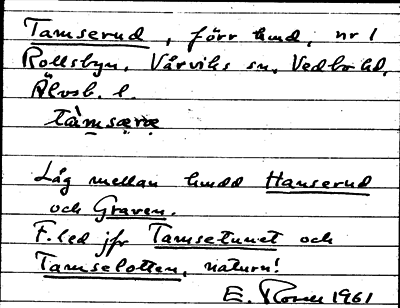 Tamserud, förr hmd, nr 1
Rollsbyn, Vårviks sn, Vedbo hd,
Älvsb. l.
tàmsæræ
Låg mellan hmdd Hanserud
och Graven.
F. led jfr Tamsetunet och
Tamselotten, naturn!
E. Rosen 1961